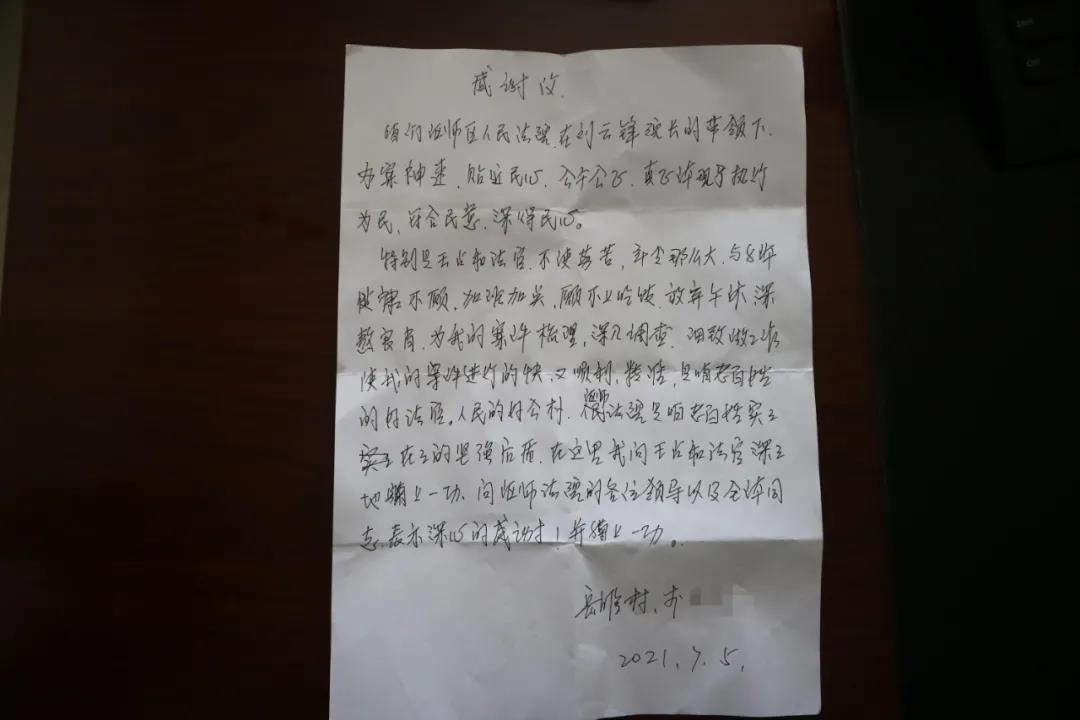 感谢信.
咱们偃师区人民法院,在刘云锋院长的带领下.
办案神速.贴近民心.公平公正.真正体现了执行
为民,符合民意.深得民心。
特别是王占和法官.不怕劳苦,年令那么大.与
不顾.加班加点,顾不上吃饭.放弃午休.深
为我的案件梳理,深入调查.细致做工作
使我的案件进行的快,又顺利,精准,是咱老百姓
的好法官。人民的好公朴.偃师法院是咱老百姓实々
在々的坚强后盾.在这里我向王占和法官深々
地鞠上一功.向偃师法院的各位领导以及全体同
志.表示深心的感谢!并鞠上一功。
村.
2021.7.5.